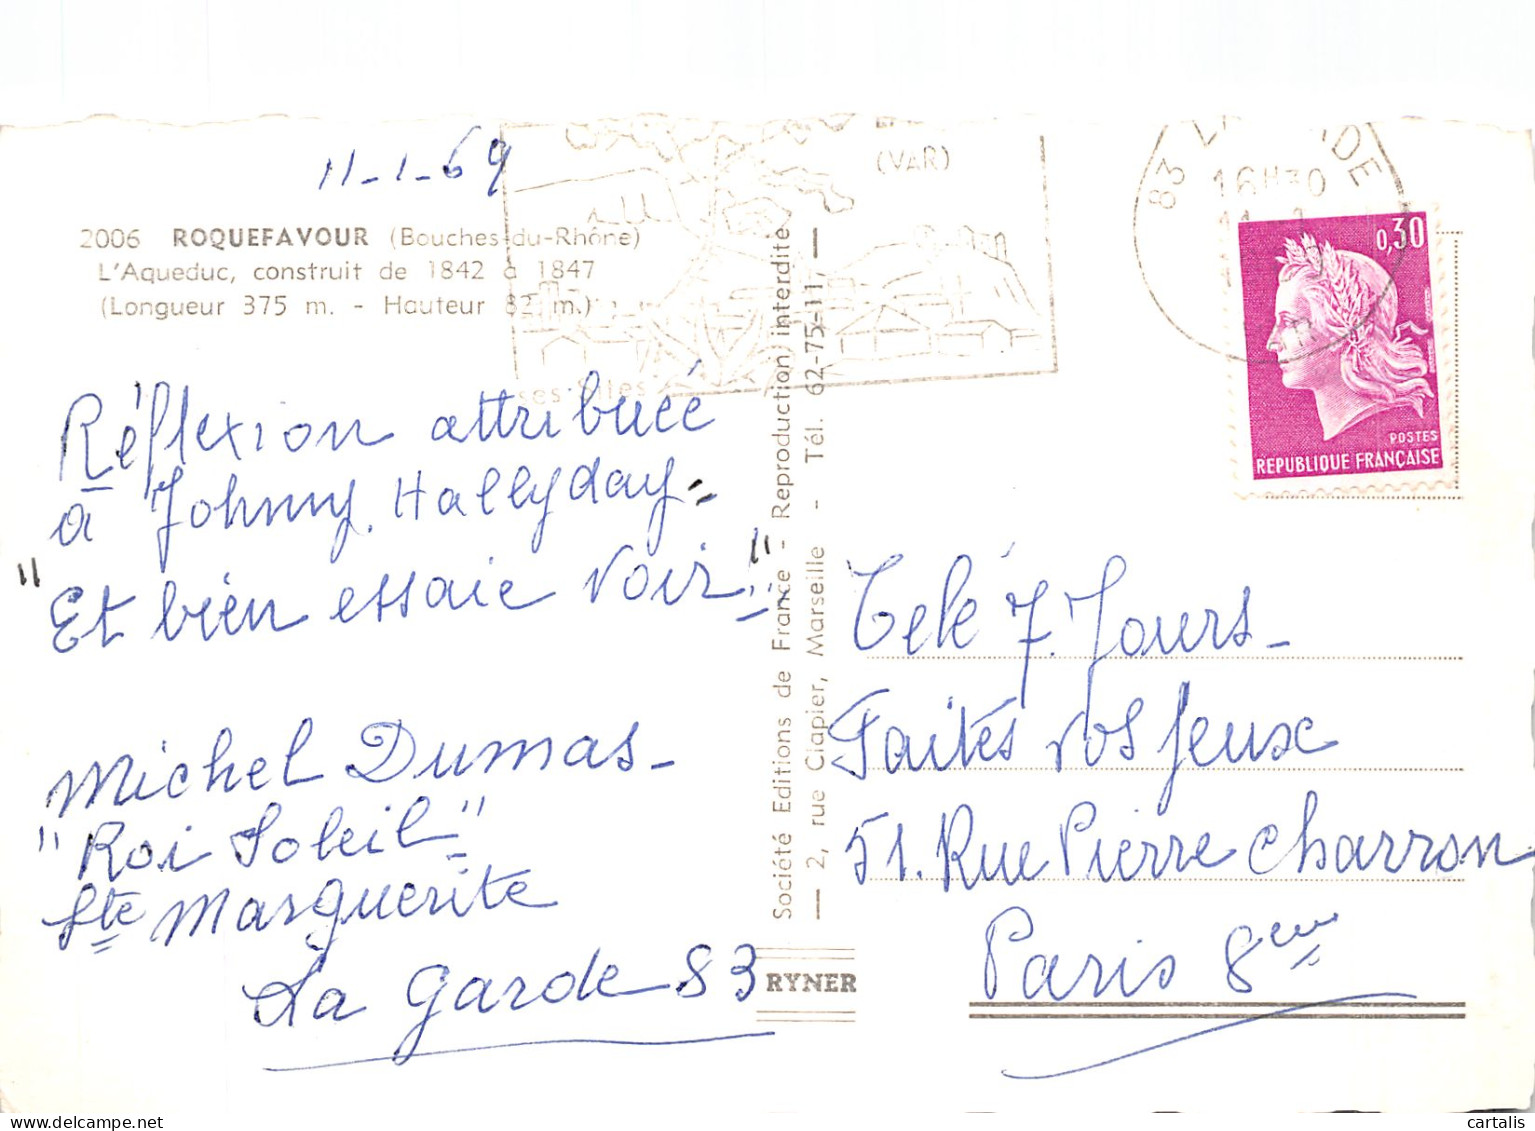 11-1-69
2006 ROQUEFAVOUR (Bouches-du-Rhône)
L'Aqueduc, construit de 1842 à 1847
(Longueur 375 m. - Hauteur 82 m.)
Réflexion attribuée
à Johnny. Hallyday =
"Et bien essaie voir"
Michel Dumas -
"Roi Soleil"
Ste Marguerite
La Garde 83
(VAR)
Société Editions de France - Reproduction interdite
— 2, rue Clapier, Marseille - Tél. 62-75-11 —
RYNER
83
16H30
0,30
POSTES
REPUBLIQUE FRANÇAISE
Télé 7. Jours -
Faites vos Jeux
51. Rue Pierre Charron
Paris 8eme
cartalis